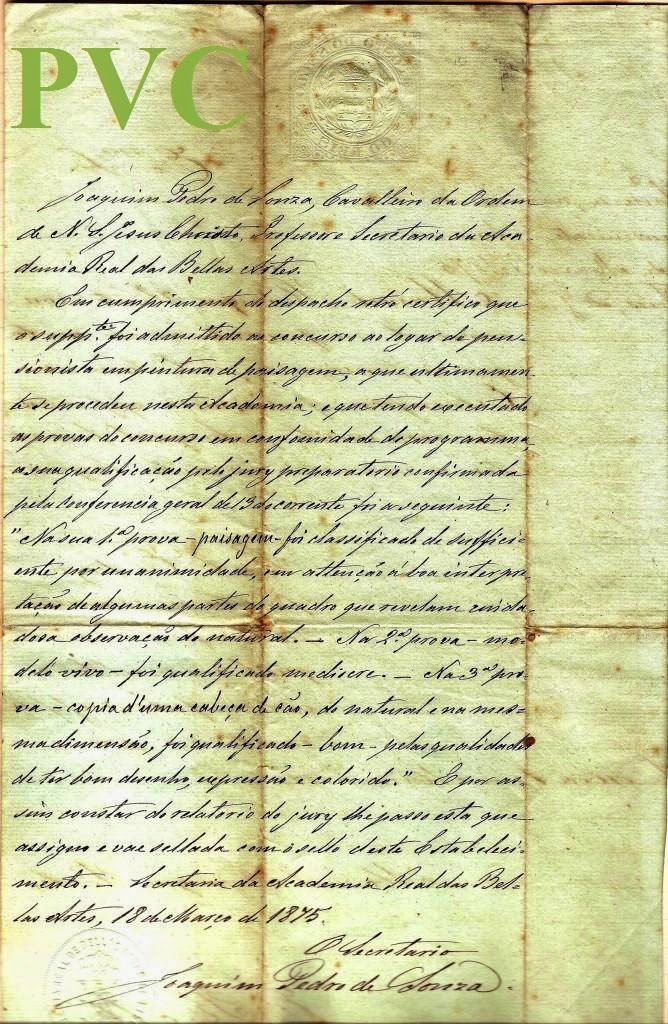 PVC
Joaquim Pedro de Souza, Cavalleiro da Ordem
de N. S. Jesus Christo, Professor e Secretario da Aca-
demia Real das Bellas Artes.
Em cumprimento do despacho retró certifico que
o suppte. foi admittido ao concurso ao logar de pen-
sionista em pintura de paisagem, a que ultimamen-
te se procedeu nesta Academia; e que tendo executado
as provas do concurso em conformidade do programma,
a sua qualificação pelo jury preparatorio confirmada
pela Conferencia geral de 13 do corrente foi a seguinte:
"Na sua 1.ª prova - paisagem - foi classificado de suffici-
ente por unanimidade, em attenção á boa interpre-
tação de algumas partes do quadro que revelam cuida-
dosa observação do natural. — Na 2.ª prova - mo-
delo vivo - foi qualificado mediocre. — Na 3.ª pro-
va - copia d'uma cabeça de cão, do natural e na mes-
ma dimensão, foi qualificado - bom - pelas qualidades
de ter bom desenho, expressão e colorido." E por as-
sim constar do relatorio do jury lhe passo esta que
assigno e vae sellada com o sello deste Estabeleci-
mento. — Secretaria da Academia Real das Bel-
las Artes, 18 de Março de 1875.
O Secretario
Joaquim Pedro de Souza.